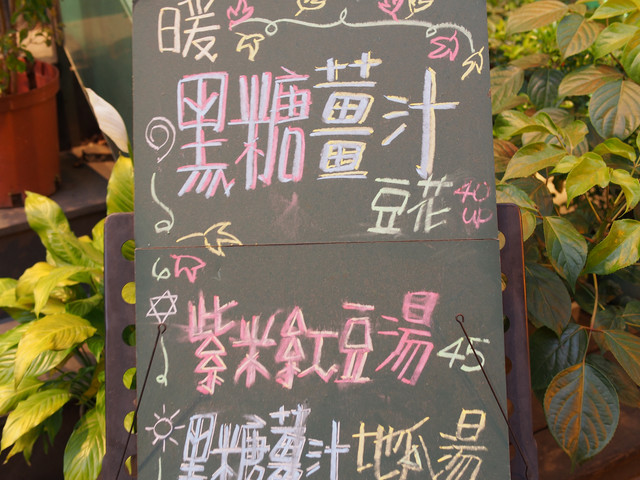 暖
黑糖薑汁
豆花 40 up
紫米紅豆湯 45
黑糖薑汁地瓜湯